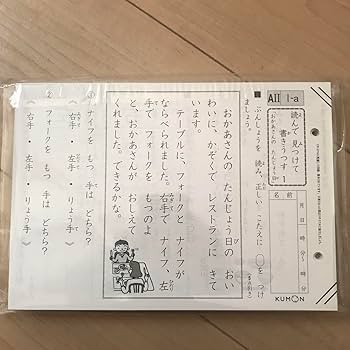 AⅡ 1-a
読んで 見つけて
書きうつす 1
「おかあさんの たんじょう日」
名前
月 日 時 分〜 時 分
ぶんしょうを 読み、正しい こたえに ○を つけ
ましょう。
おかあさんの たんじょう日の おい
わいに、かぞくで レストランに きて
います。
テーブルに、フォークと ナイフが
ならべられました。右手で ナイフ、左
手で フォークを もつのよ
と、おかあさんが おしえて
くれました。できるかな。
① ナイフを もつ 手は どちら?
右手 ・ 左手 ・ りょう手
② フォークを もつ 手は どちら?
右手 ・ 左手 ・ りょう手
KUMON